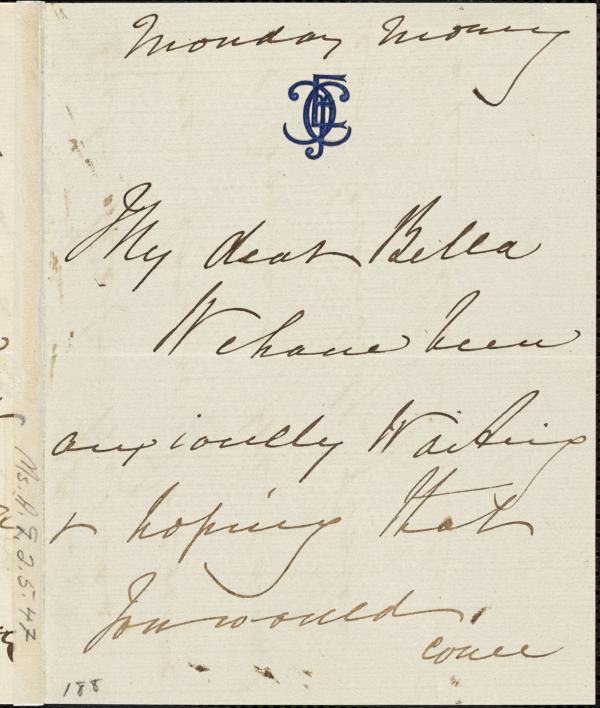 Monday Morng
My dear Bella
We have been
anxiously Waiting
& hoping that
You would
come
188
Ms. A. 9. 2. 5. 47